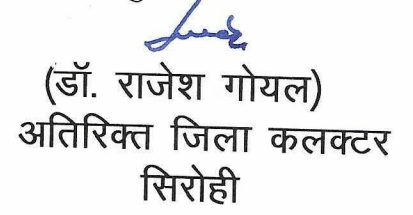 (डॉ. राजेश गोयल)
अतिरिक्त जिला कलक्टर
सिरोही